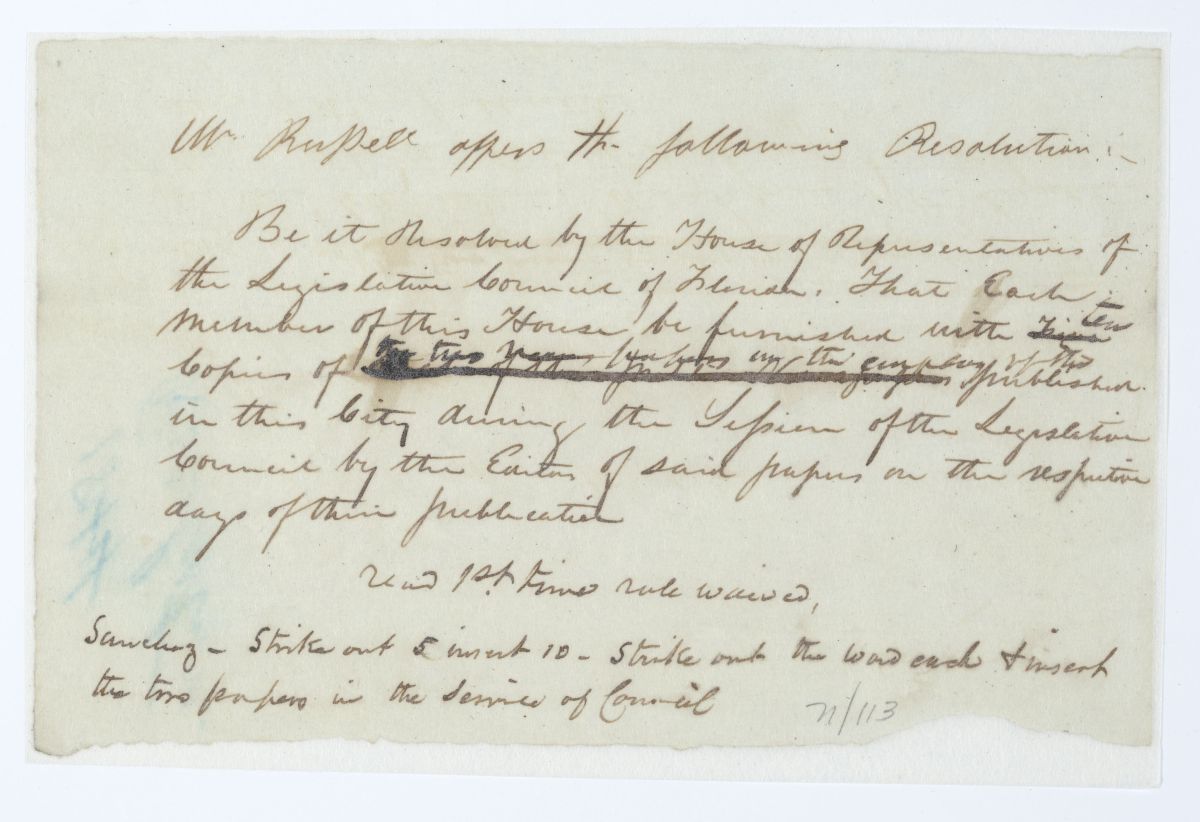 Mr. Russell offers the following Resolution:-
Be it resolved by the House of Representatives of
the Legislative Council of Florida. That Each
Member of this House be furnished with five ten
Copies of the two papers in the employ of the published
in this City during the Session of the Legislative
Council by the Editors of said papers on the respective
days of their publication
read 1st time rule waived,
Sanchez - Strike out 5 insert 10 - Strike out the word each & insert
the two papers in the service of Council
71/113